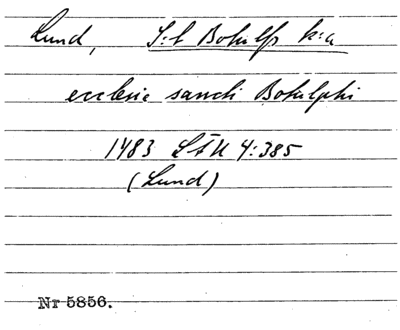 Lund, S:t Botulfs k:a
ecclesie sancti Botulphi
1483 LÄU 4:385
(Lund)
Nr 5856.